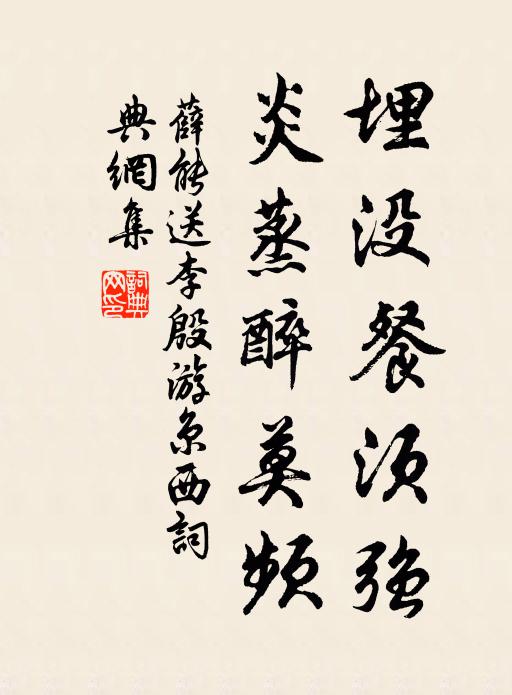 埋没餐须強
炎蒸醉莫频
薛能送李殷游京西詞
典網集
詞典网印